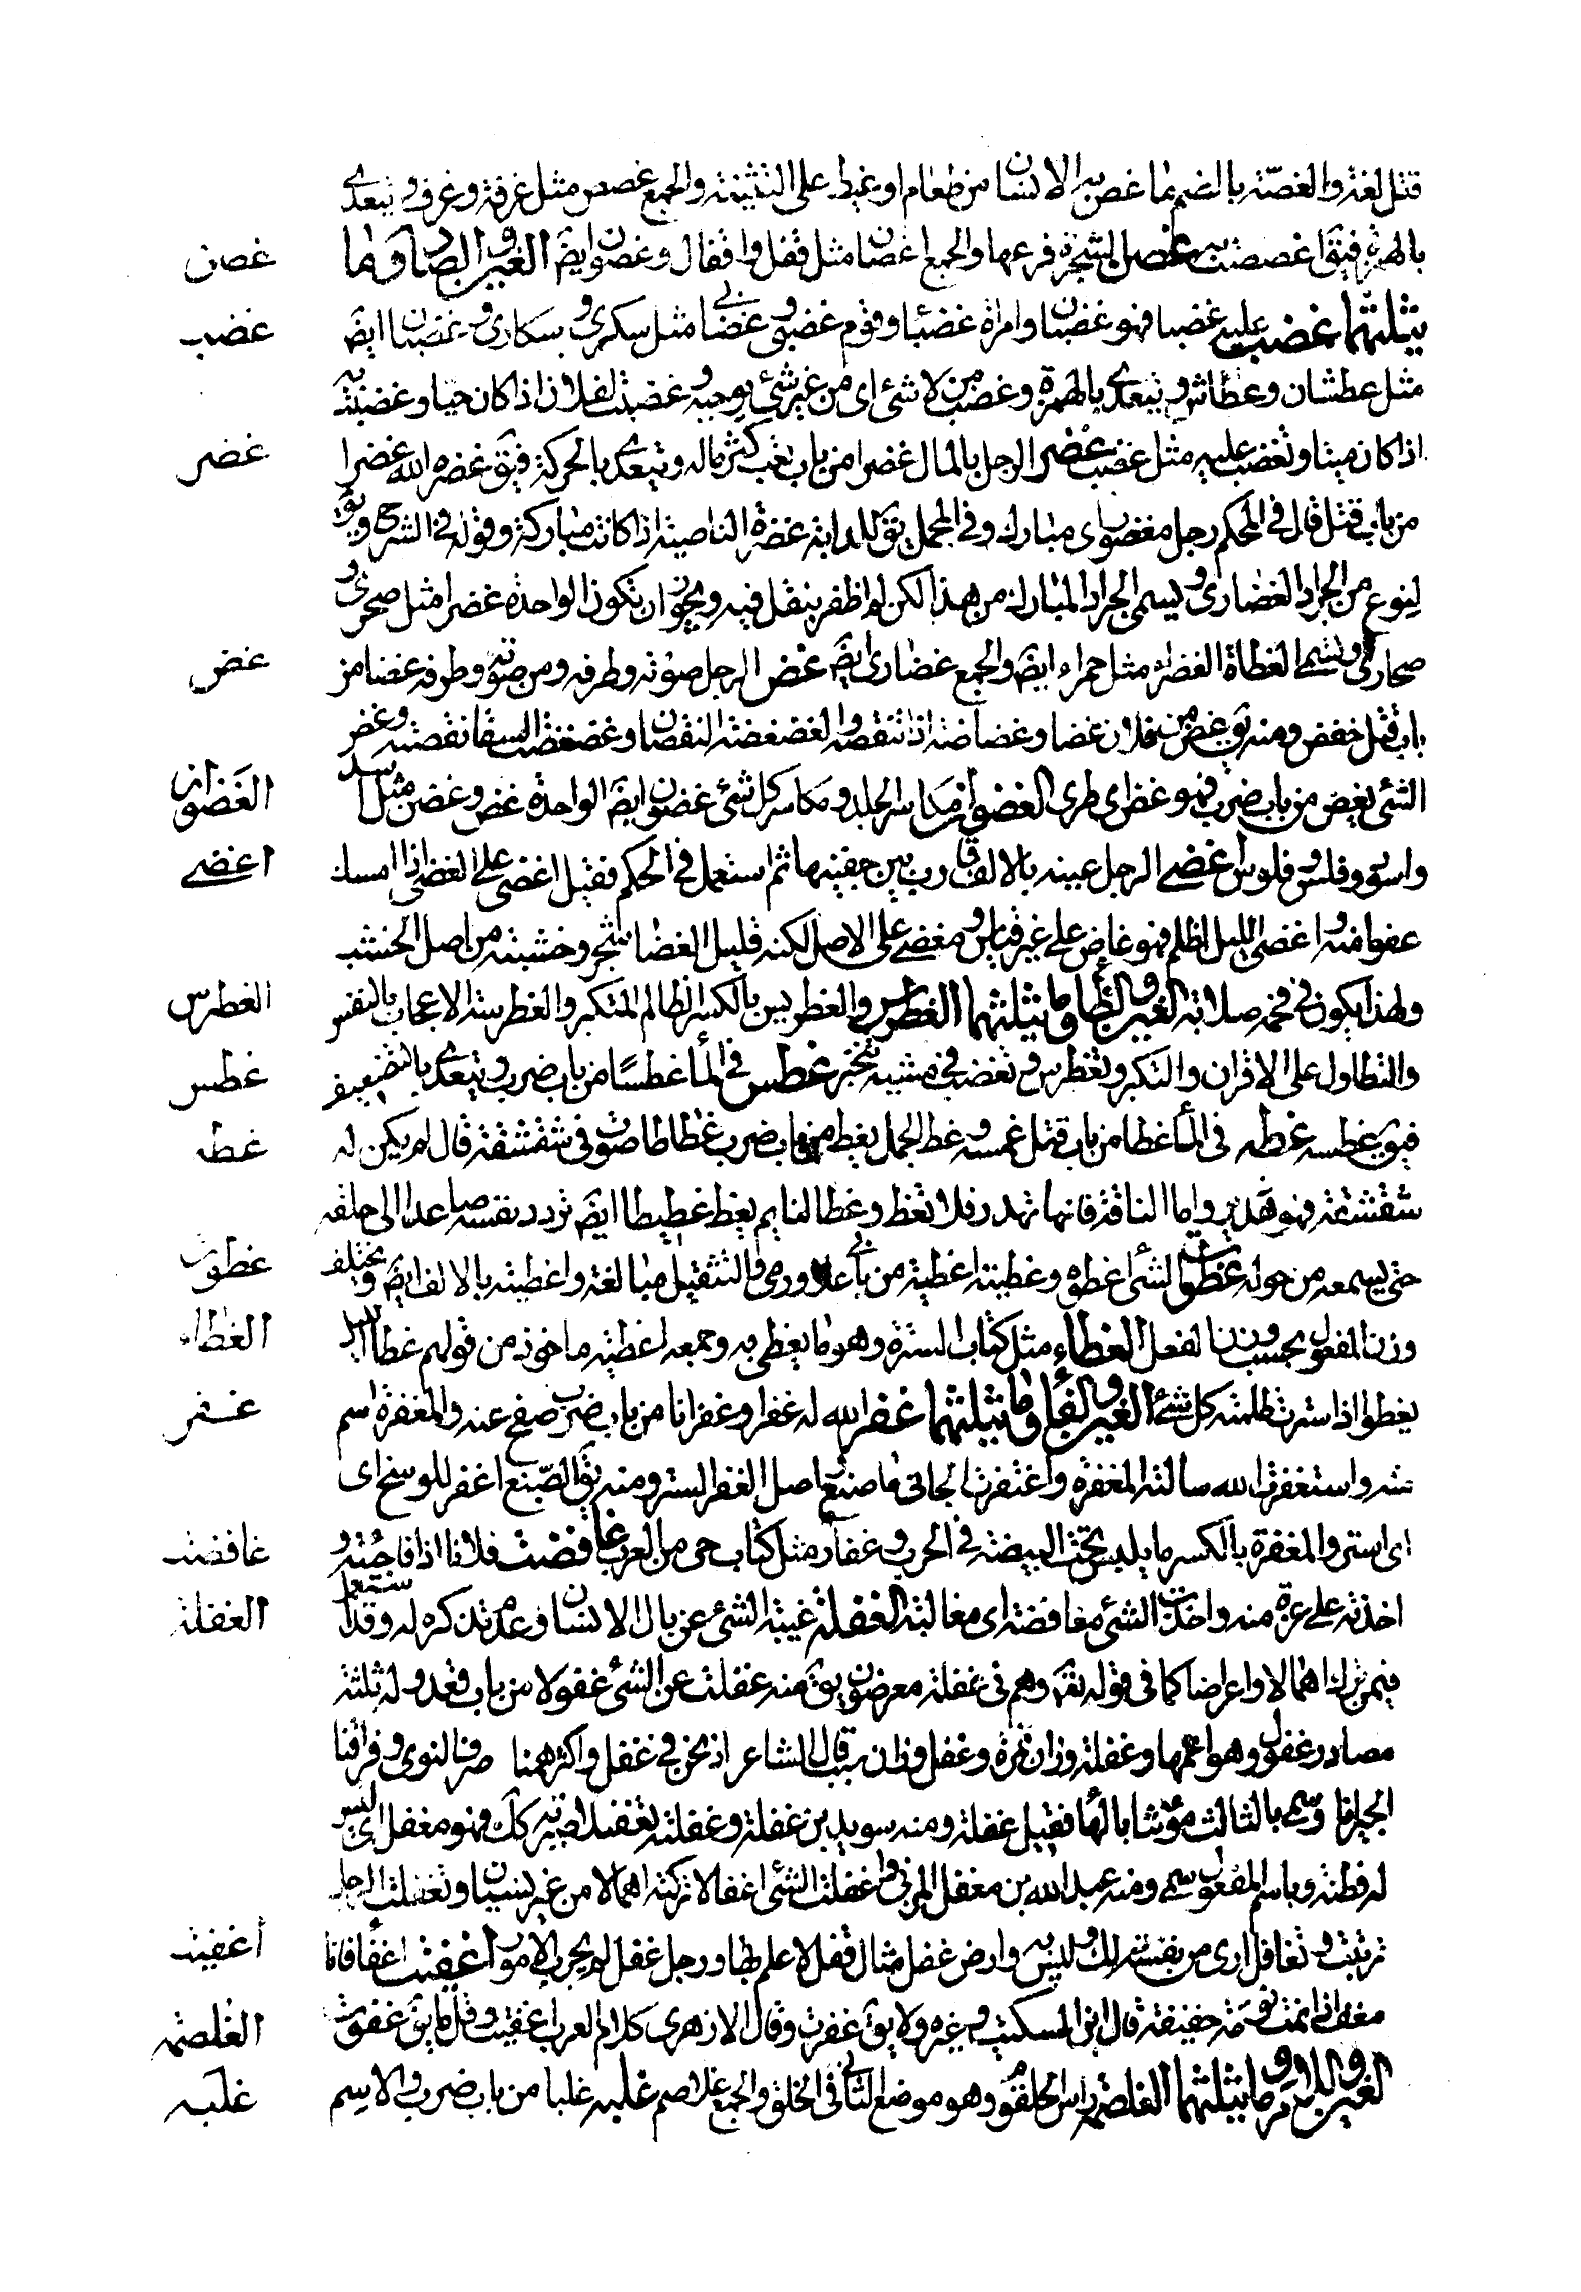 قتل لغة والغصّة بالضم ما غص به الانسان من طعام او غيظ على التشبيه والجمع غصص مثل غرفة وغرف ويتعدى
بالهمزة فيقَ اغصصته به غصن الشجرة فرعها والجمع اغصان مثل قفل واقفال وغصون ايضَ الغين والضاد وما
غصن
يثلثهما غضب عليه غضبا فهو غضبان وامراة غضبى وقوم غضبى وغضابى مثل سكرى وسكارى وغضبان ايضَ
غضب
مثل عطشان وعطاش ويتعدى بالهمزة وغضب من لا شئ اى من غير شئ يوجبه وغضبت لفلان اذا كان حيا وغضبت به
اذا كان ميتا وتغضب عليه مثل غضب غضر الرجل بالمال غضرا من باب تعب كثر ماله ويتعدى بالحركة فيقَ غضره الله غضرا
غضر
من باب قتل قال فى المحكم رجل مغضور اى مبارك وفى المجمل يقَ للدابة غضرة الناصية اذا كانت مباركة وقوله فى الشرح ويقَ
لنوع من الجراد الغضارى ويسمى الجراد المبارك من هذا لكن لم اظفر بنقل فيه ويجوز ان يكون الواحدة غضرا مثل صحرى و
صحارى وتسمى القطاة الغضراء مثل حمراء ايضَ والجمع غضارى ايضَ غض الرجل صوته وطرفه ومن صوته وطرفه غضا من
غض
باب قتل خفض ومنه يقَ غض من فلان غضا وغضاضة اذا تنقصه والغضغضة النقصان وغضغضت السقا نقصته وغض
الشئ يغض من باب ضرب فهو غض اى طرى الغضون مكاسر الجلد ومكاسر كل شئ غضون ايضَ الواحدة غضن وغضن مثل اسد
الغضون
واسود وفلس وفلوس اغضى الرجل عينه بالالف قارب بين جفنيها ثم استعمل فى الحكم فقيل اغضى على القذى اذا امسك
اغضى
عفوا منه واغضى الليل اظلم فهو غاض على غير قياس ومغضى على الاصل لكنه قليل الغضا شجر وخشبه من اصل الخشب
ولهذا يكون فى فحمه صلابة الغين والطا وما يثلثهما الغطرس والغطريس بالكسر الظالم المتكبر والغطرسة الاعجاب بالنفس
الغطرس
والتطاول على الاقران والتكبر وتغطرس وتغضب فى مشيه تبختر غطس فى الماء غطسًا من باب ضرب ويتعدى بالتضعيف
غطس
فيقَ غطسه غطه فى الماء غطا من باب قتل غمسه وغط الجمل يغط من باب ضرب غطاطا صوت فى شقشقة قال لم يكن له
غطه
شقشقة فهو هدير واما الناقة فانها تهدر فلا تغظ وغط النايم يغط غطيطا ايضَ تردد نفسه صاعدا الى حلقه
حتى يسمعه من حوله غطوت الشئ اغطوه وغطيته اغطية من بابى علا ورمى والتثقيل مبالغة واغطيته بالالف ايضَ ويختلف
غطوت
وزن المفعول بحسب وزن الفعل الغطاء مثل كتاب السترة وهو ما يغطى به وجمعه اغطية ماخوذ من قولهم غطا الليل
الغطاء
يغطوا اذا سترت ظلمته كل شئ الغين والفاء وما يثلثهما غفر الله له غفرا وغفرانا من باب ضرب صفح عنه والمغفرة اسم
غفر
منه واستغفرت الله سالته المغفرة واغتفرت للجانى ما صنع واصل الغفر الستر ومنه يقَ الصبغ اغفر للوسخ اى
اى استر والمغفرة بالكسر ما يلبس تحت البيضة فى الحرب وغفار مثل كتاب حى من العرب غافضت فلانا اذا فاجئته و
غافضت
اخذته على غرة منه واخذت الشئ مغافضة اى مغالبة الغفلة غيبة الشئ عن بال الانسان وعدم تذكره له وقد استعمل
الغفلة
فيمن تركه اهمالا واعراضا كما فى قوله تعَ وهم فى غفلة معرضون يقَ منه غفلت عن الشئ غفولا من باب قعد وله ثلثة
مصادر غفول وهو اعمها وغفلة وزان تمرة وغفل وزان سبب قال الشاعر اذ نحن فى غفل واكثر همنا صرف النوى وفراقنا
الجيرانا وسمى بالثالث مؤنثا بالها فقيل غفلة ومنه سويد بن غفلة وغفلته تغفيلا صيرته كذلك فهو مغفل اى ليس
له فطنة وباسم المفعول سمى ومنه عبد الله بن مغفل المزنى واغفلت الشئ اغفالا تركته اهمالا من غير نسيان وتغفلت الرجل
ترتبت وتغافل ارى من نفسه ذلك وليس به وارض غفل مثال قفل لا علم بها ورجل غفل لم يجرب الامور اغفيت اغفاء فانا
أغفيت
مغف اذا نمت نومة خفيفة قال ابن السكيت وغيره ولا يقَ غفوت وقال الازهرى كلام العرب اغفيت وقل ما يقَ غفوت
الغين واللام وما يثلثهما الغلصمة راس الحلقوم وهو موضع الناتى فى الحلق والجمع غلاصم غلبه غلبا من باب ضرب والاسم
الغلصمة
غلبه